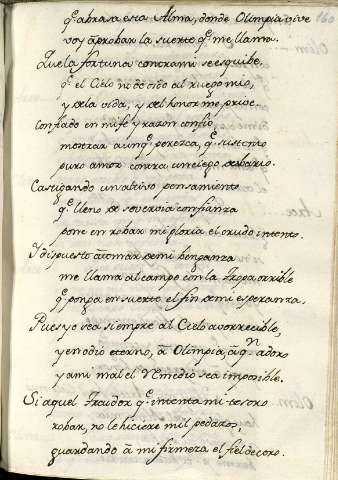 qe. abrasa esta Alma, donde Olimpia vive
voy â probar la suerte qe. me llama.
Que la fortuna contra mi se esquibe
qe. el Cielo ni de oido al ruego mio,
y de la vida, y del honor me prive.
Confiado en mi fe y razon confio
mostrar aunqe. perezca, qe. sustento
puro amor contra un ciego desbario.
Castigando un altivo pensamiento
qe. lleno de sovervia confianza
pone en robar mi gloria el crudo intento.
Y dispuesto â tomar de mi benganza
me llama al campo con la Tropa orrible
qe. ponga en suerte el fin de mi esperanza.
Pues yo sea siempre al Cielo aborrecible,
y en odio eterno, â Olimpia, â qn. adoro
y a mi mal el Remedio sea imposible.
Si aquel Traidor qe. intenta mi tesoro
robar, no le hiciere mil pedazos,
guardando â mi firmeza el fiel decoro.
160